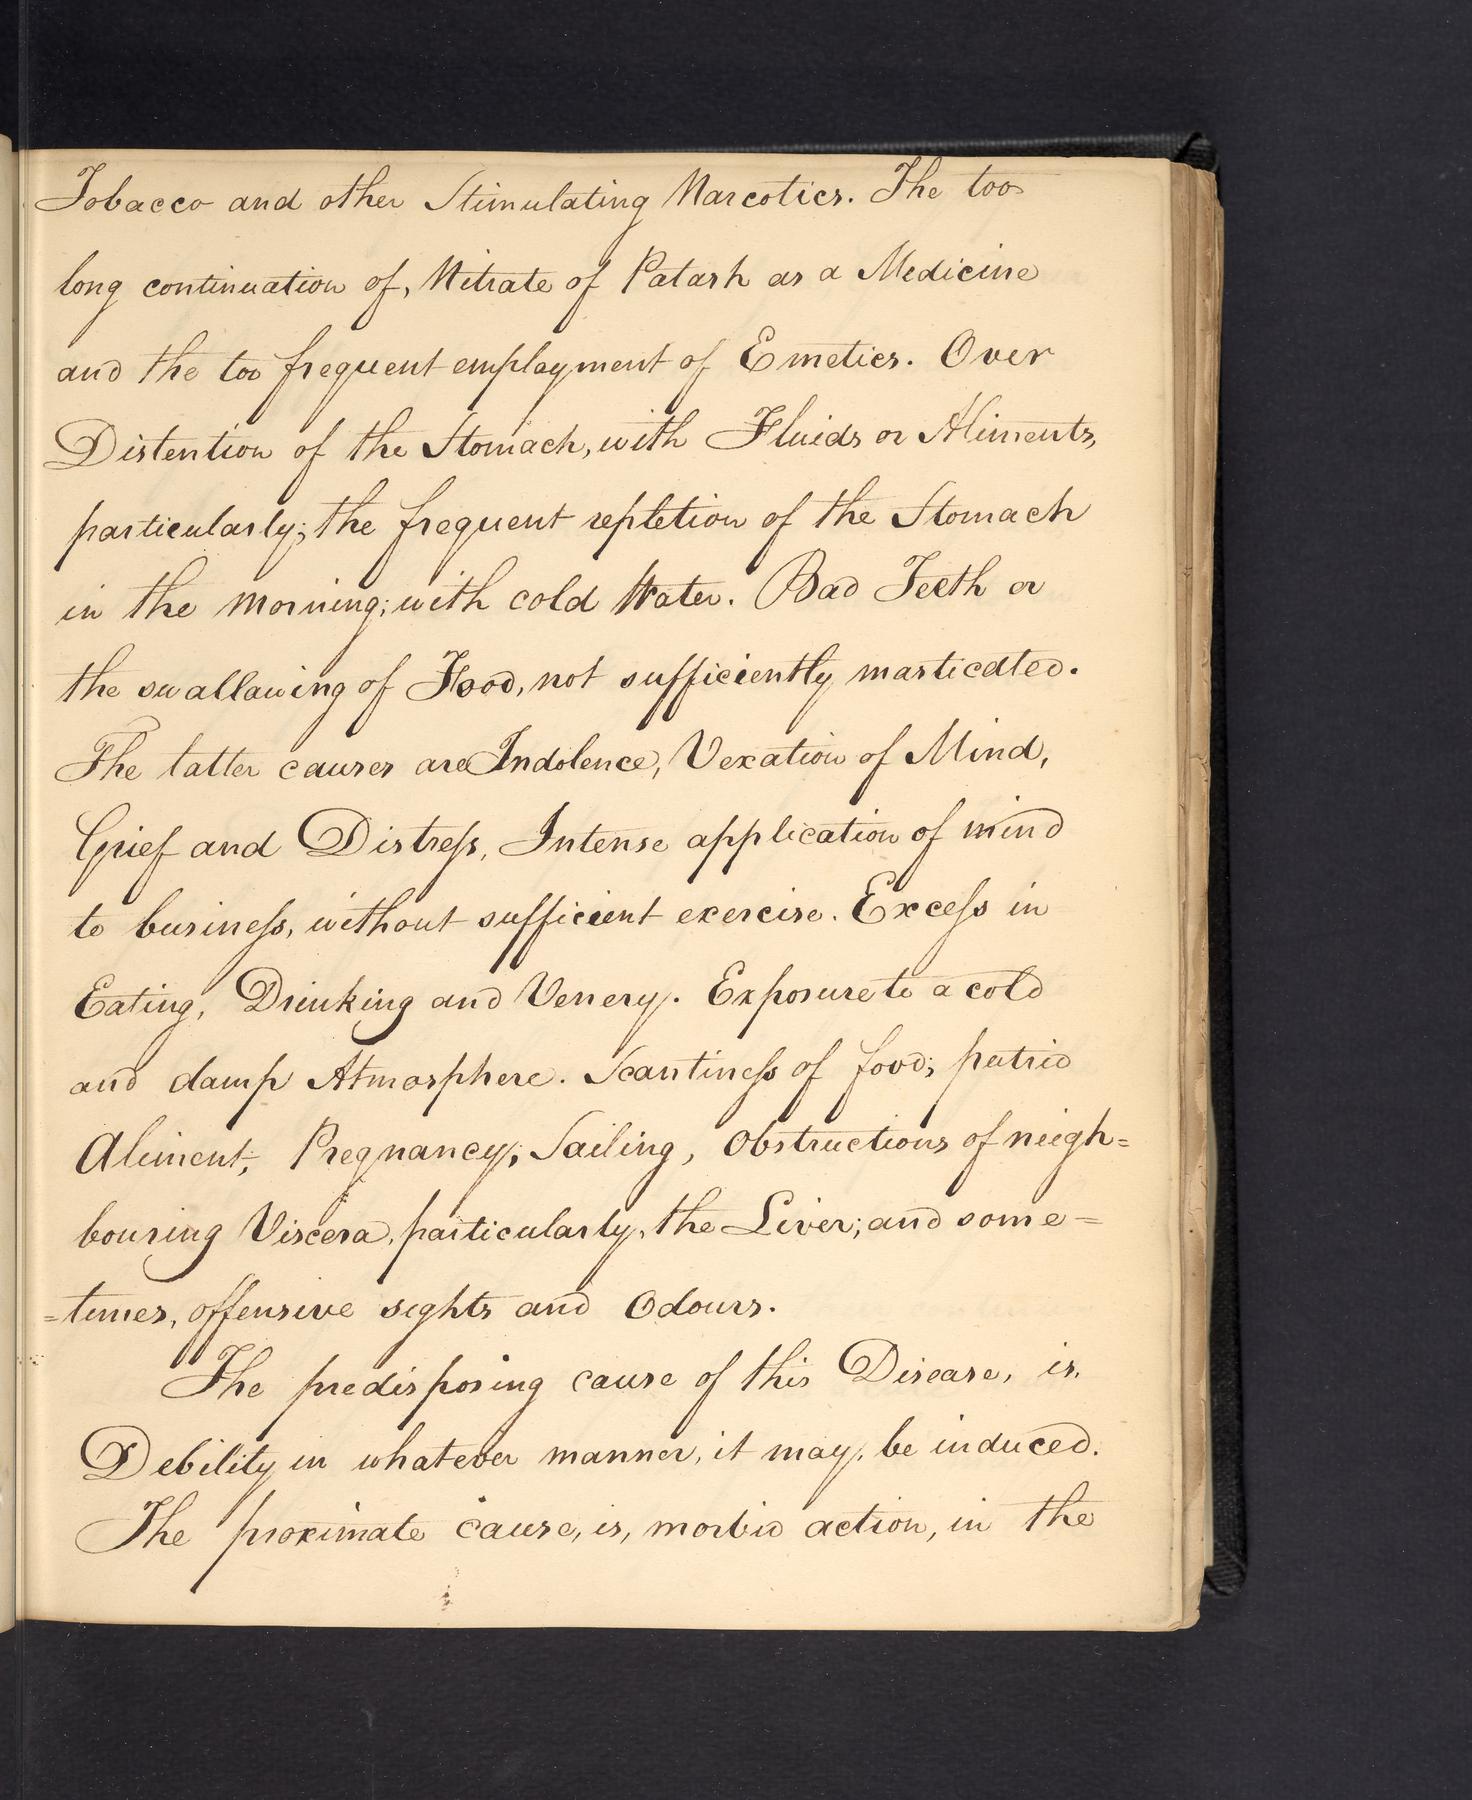 Tobacco and other Stimulating Narcotics. The too
long continuation of, Nitrate of Patash as a Medicine
and the too frequent employment of Emetics. Over
Distention of the Stomach, with Fluids or Aliments,
particularly; the frequent repletion of the Stomach
in the morning; with cold Water. Bad Teeth or
the swallowing of Food, not sufficiently masticated.
The latter causes are Indolence, Vexation of Mind,
Grief and Distreſs, Intense application of mind
to busineſs, without sufficient exercise. Exceſs in
Eating, Drinking and Venery. Exposure to a cold
and damp Atmosphere. Scantineſs of food; putrid
Aliment, Pregnancy; Sailing, Obstructions of neigh=
bouring Viscera, particularly, the Liver; and some=
=times, offensive sights and Odours.
The predisposing cause of this Disease, is,
Debility in whatever manner, it may, be induced.
The proximate cause, is, morbid action, in the